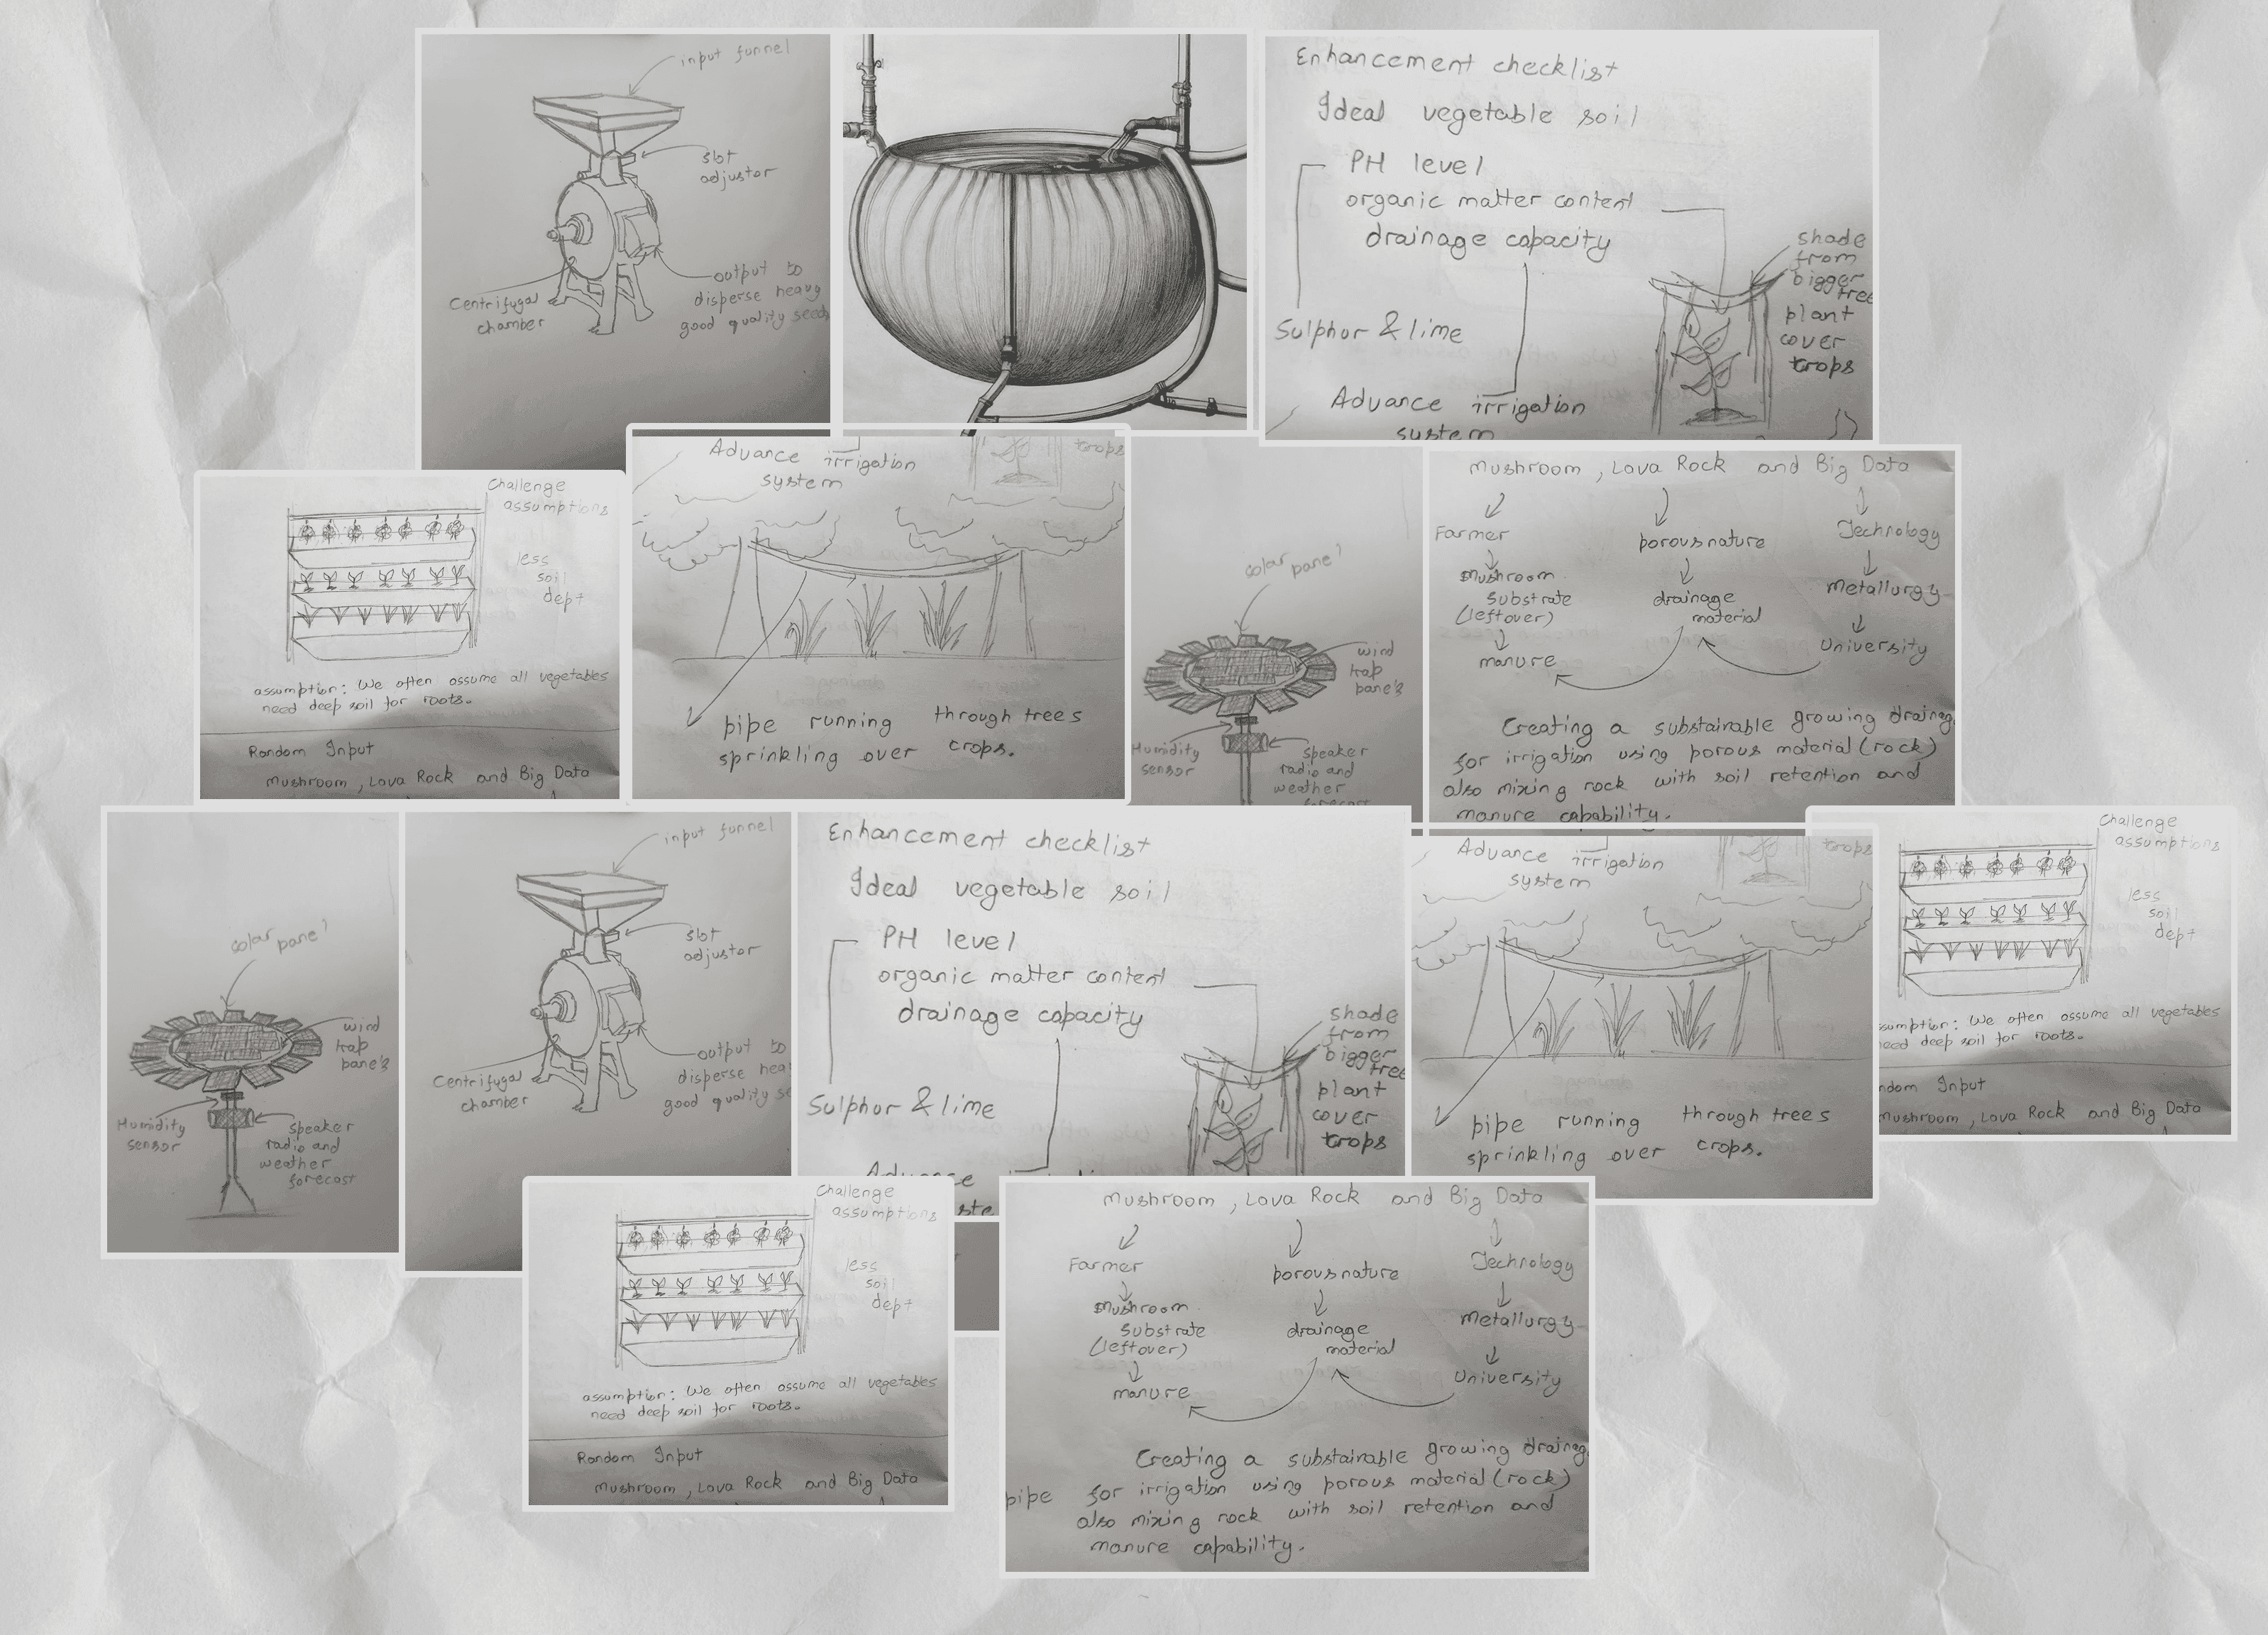 input funnel
slot
adjustor
output to
disperse heavy
good quality seeds
Centrifugal
chamber
Enhancement checklist
Ideal vegetable soil
PH level
organic matter content
drainage capacity
shade
from
bigger
tree
plant
cover
crops
Sulphur & lime
Advance irrigation
system
Challenge
assumptions
less
soil
dept
assumption: We often assume all vegetables
need deep soil for roots.
Random Input
Mushroom, Lava Rock and Big Data
Advance irrigation
system
crops
pipe running through trees
sprinkling over crops.
solar panel
wind
trap
pane's
Humidity
sensor
speaker
radio and
weather
forecast
Mushroom, Lava Rock and Big Data
Farmer
porous nature
Technology
Mushroom
Substrate
(leftover)
drainage
material
Metallurgy
manure
University
Creating a substainable growing drainag
for irrigation using porous material (rock)
also mixing rock with soil retention and
manure capability.
solar panel
wind
trap
pane's
Humidity
sensor
speaker
radio and
weather
forecast
input funnel
slot
adjustor
output to
disperse hea
good quality se
Centrifugal
chamber
Enhancement checklist
Ideal vegetable soil
PH level
organic matter content
drainage capacity
shade
from
bigger
tree
plant
cover
crops
Sulphur & lime
Advance
Advance irrigation
system
crops
pipe running through trees
sprinkling over crops.
Challenge
assumptions
less
soil
dept
ssumption: We often assume all vegetables
need deep soil for roots.
ndom Input
Mushroom, Lava Rock and Big Data
Challenge
assumptions
less
soil
dept
assumption: We often assume all vegetables
need deep soil for roots.
Random Input
Mushroom, Lava Rock and Big Data
Mushroom, Lava Rock and Big Data
Farmer
porous nature
Technology
Mushroom
Substrate
(leftover)
drainage
material
Metallurgy
manure
University
Creating a substainable growing drainag
pipe for irrigation using porous material (rock)
also mixing rock with soil retention and
manure capability.